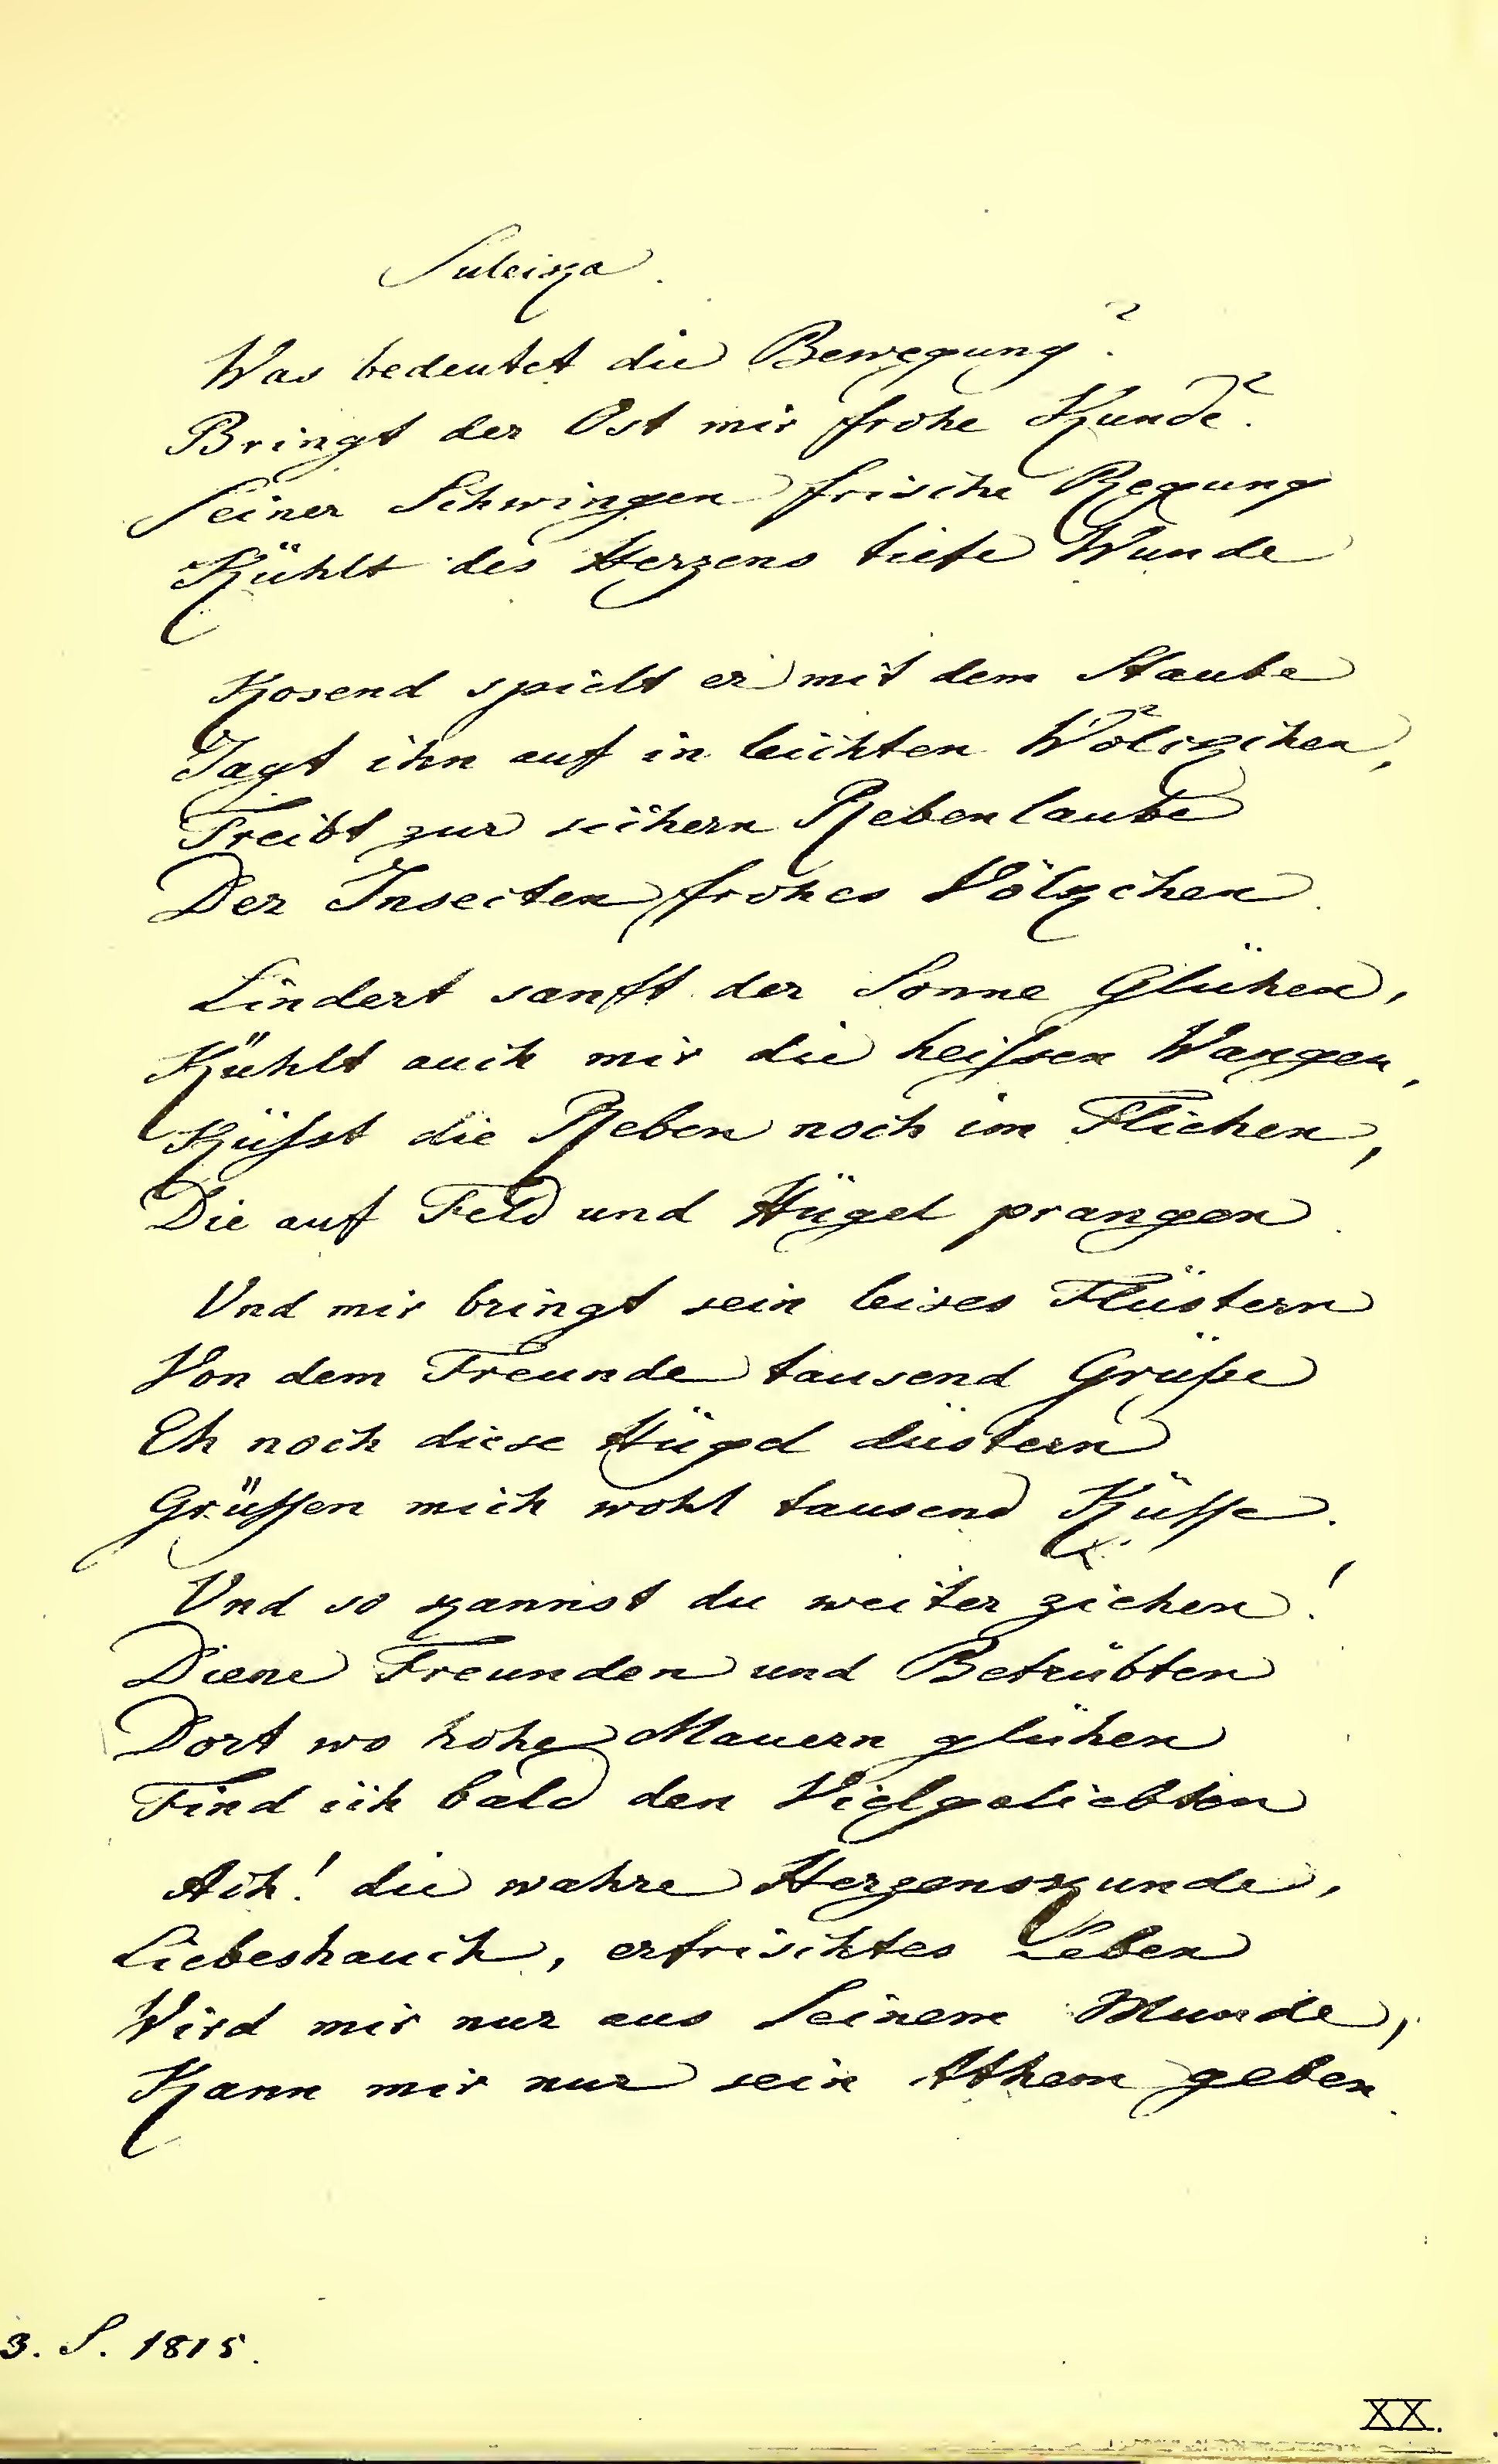 Suleika.
Was bedeutet die Bewegung?
Bringt der Ost mir frohe Kunde?
Seiner Schwingen frische Regung
Kühlt des Herzens tiefe Wunde
Kosend spielt er mit dem Staube
Jagt ihn auf in leichten Wölkchen,
Treibt zur sichern Rebenlaube
Der Insecten frohes Völkchen.
Lindert sanft der Sonne Glühen,
Kühlt auch mir die heißen Wangen,
Küßt die Reben noch im Fliehen,
Die auf Feld und Hügel prangen.
Und mir bringt sein leises Flüstern
Von dem Freunde tausend Grüße
Eh noch diese Hügel düstern
Grüssen mich wohl tausend Küsse.
Und so kannst du weiter ziehen!
Diene Freunden und Betrübten
Dort wo hohe Mauern glühen
Find ich bald den Vielgeliebten
Ach! die wahre Herzenskunde,
Liebeshauch, erfrischtes Leben
Wird mir nur aus Seinem Munde,
Kann mir nur sein Athem geben.
3. S. 1815.
XX.